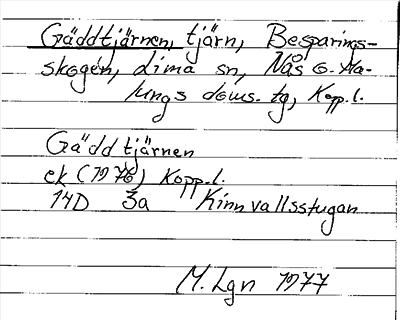 Gäddtjärnen, tjärn, Besparings-
skogen, Lima sn, Nås o. Ma-
lungs doms. tg, Kopp.l.
Gäddtjärnen
ek (1976) Kopp.l.
14D 3a Kinnvallsstugan
M. Lgn 1977